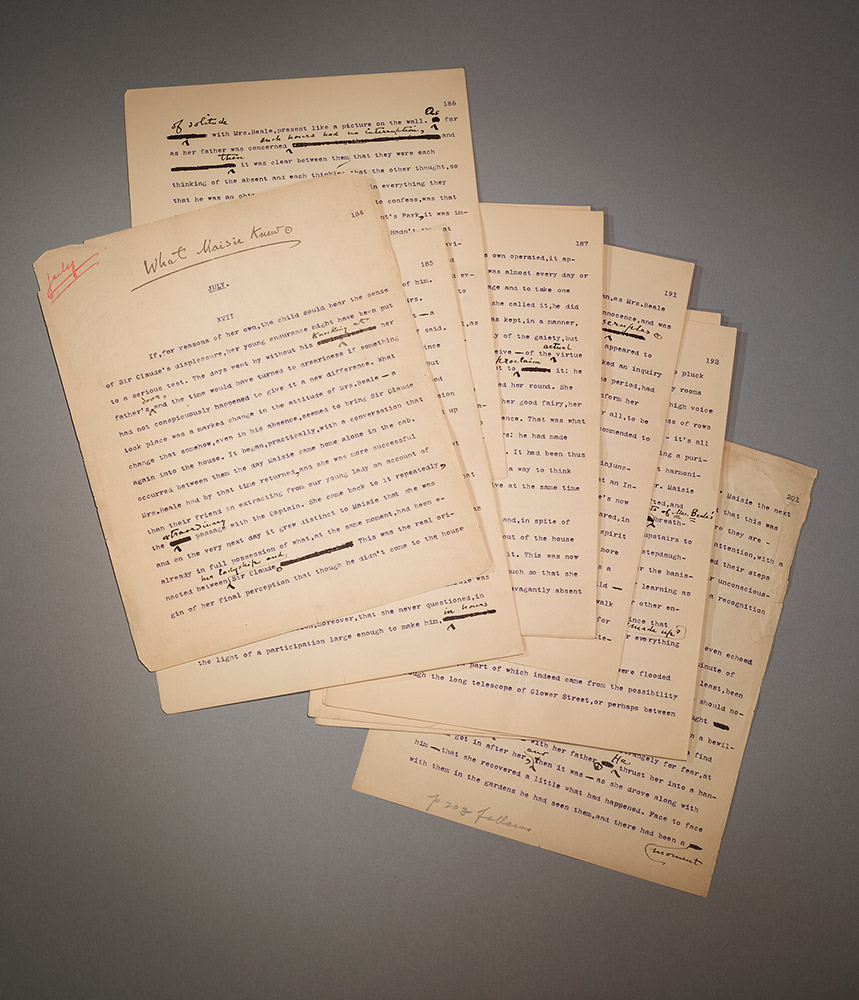 186
of solitude
with Mrs. Beale, present like a picture on the wall. As far
such hours had no interruption,
as her father was concerned and
then
it was clear between them that they were each
thinking of the absent and each thinking that the other thought, so
that he was an in everything they
to confess, was that
nt's Park, it was im-
184
July
What Maisie Knew.
JULY.
XVII
If, for reasons of her own, the child could bear the sense
of Sir Claude's displeasure, her young endurance might have been put
knocking at
to a serious test. The days went by without his her
door,
father's and the time would have turned to dreariness if something
had not conspicuously happened to give it a new difference. What
took place was a marked change in the attitude of Mrs. Beale — a
change that somehow, even in his absence, seemed to bring Sir Claude
again into the house. It began, practically, with a conversation that
occurred between them the day Maisie came home alone in the cab.
Mrs. Beale had by that time returned, and she was more successful
than their friend in extracting from our young lady an account of
extraordinary
the passage with the Captain. She came back to it repeatedly,
and on the very next day it grew distinct to Maisie that she was
already in full possession of what, at the same moment, had been e-
her ladyship and
nacted between Sir Claude. This was the real ori-
gin of her final perception that though he didn't come to the house
185
of him.
irs.
— a
said.
ince
But
that
up on
that
was
moreover, that she never questioned, in
in hours
the light of a participation large enough to make him,
187
s own operated, it ap-
was almost every day or
age and to take one
she called it, he did
as kept, in a manner,
y of the gaiety, but
actual
ceive — of the virtue
proclaim
to it: he
ed her round. She
her good fairy, her
ence. That was what
rs: he had made
It had been thus
a way to think
ve at the same time
and, in spite of
out of the house
it. This was now
uch so that she
avagantly absent
191
an, as Mrs. Beale
nnocence, and was
scruples.
appeared to
ked an inquiry
s period, had
form her
r all, to be
ommended to
injunc-
at an In-
e's now
ared, in
spirit
more
s a
ld —
walk
for
te-
192
pluck
y rooms
high voice
ss of rows
— it's all
ng a puri-
t harmoni-
r. Maisie
fted, and
to of Mrs. Beale's
breath-
upstairs to
stepdaugh-
r the banis-
of learning as
other en-
ince that
made up?
r everything
were flooded
part of which indeed came from the possibility
ugh the long telescope of Glower Street, or perhaps between
201
Maisie the next
that this was
re they are —
attention, with a
ed their steps
r unconscious-
a recognition
even echoed
inute of
least, been
should no-
ught
n a bewil-
e find
with her father. He trangely for fear, at
got in after her, and thrust her into a han-
him — that she recovered a little what had happened. Face to face
then it was — as she drove along with
with them in the gardens he had seen them, and there had been a
moment
p 202 follows